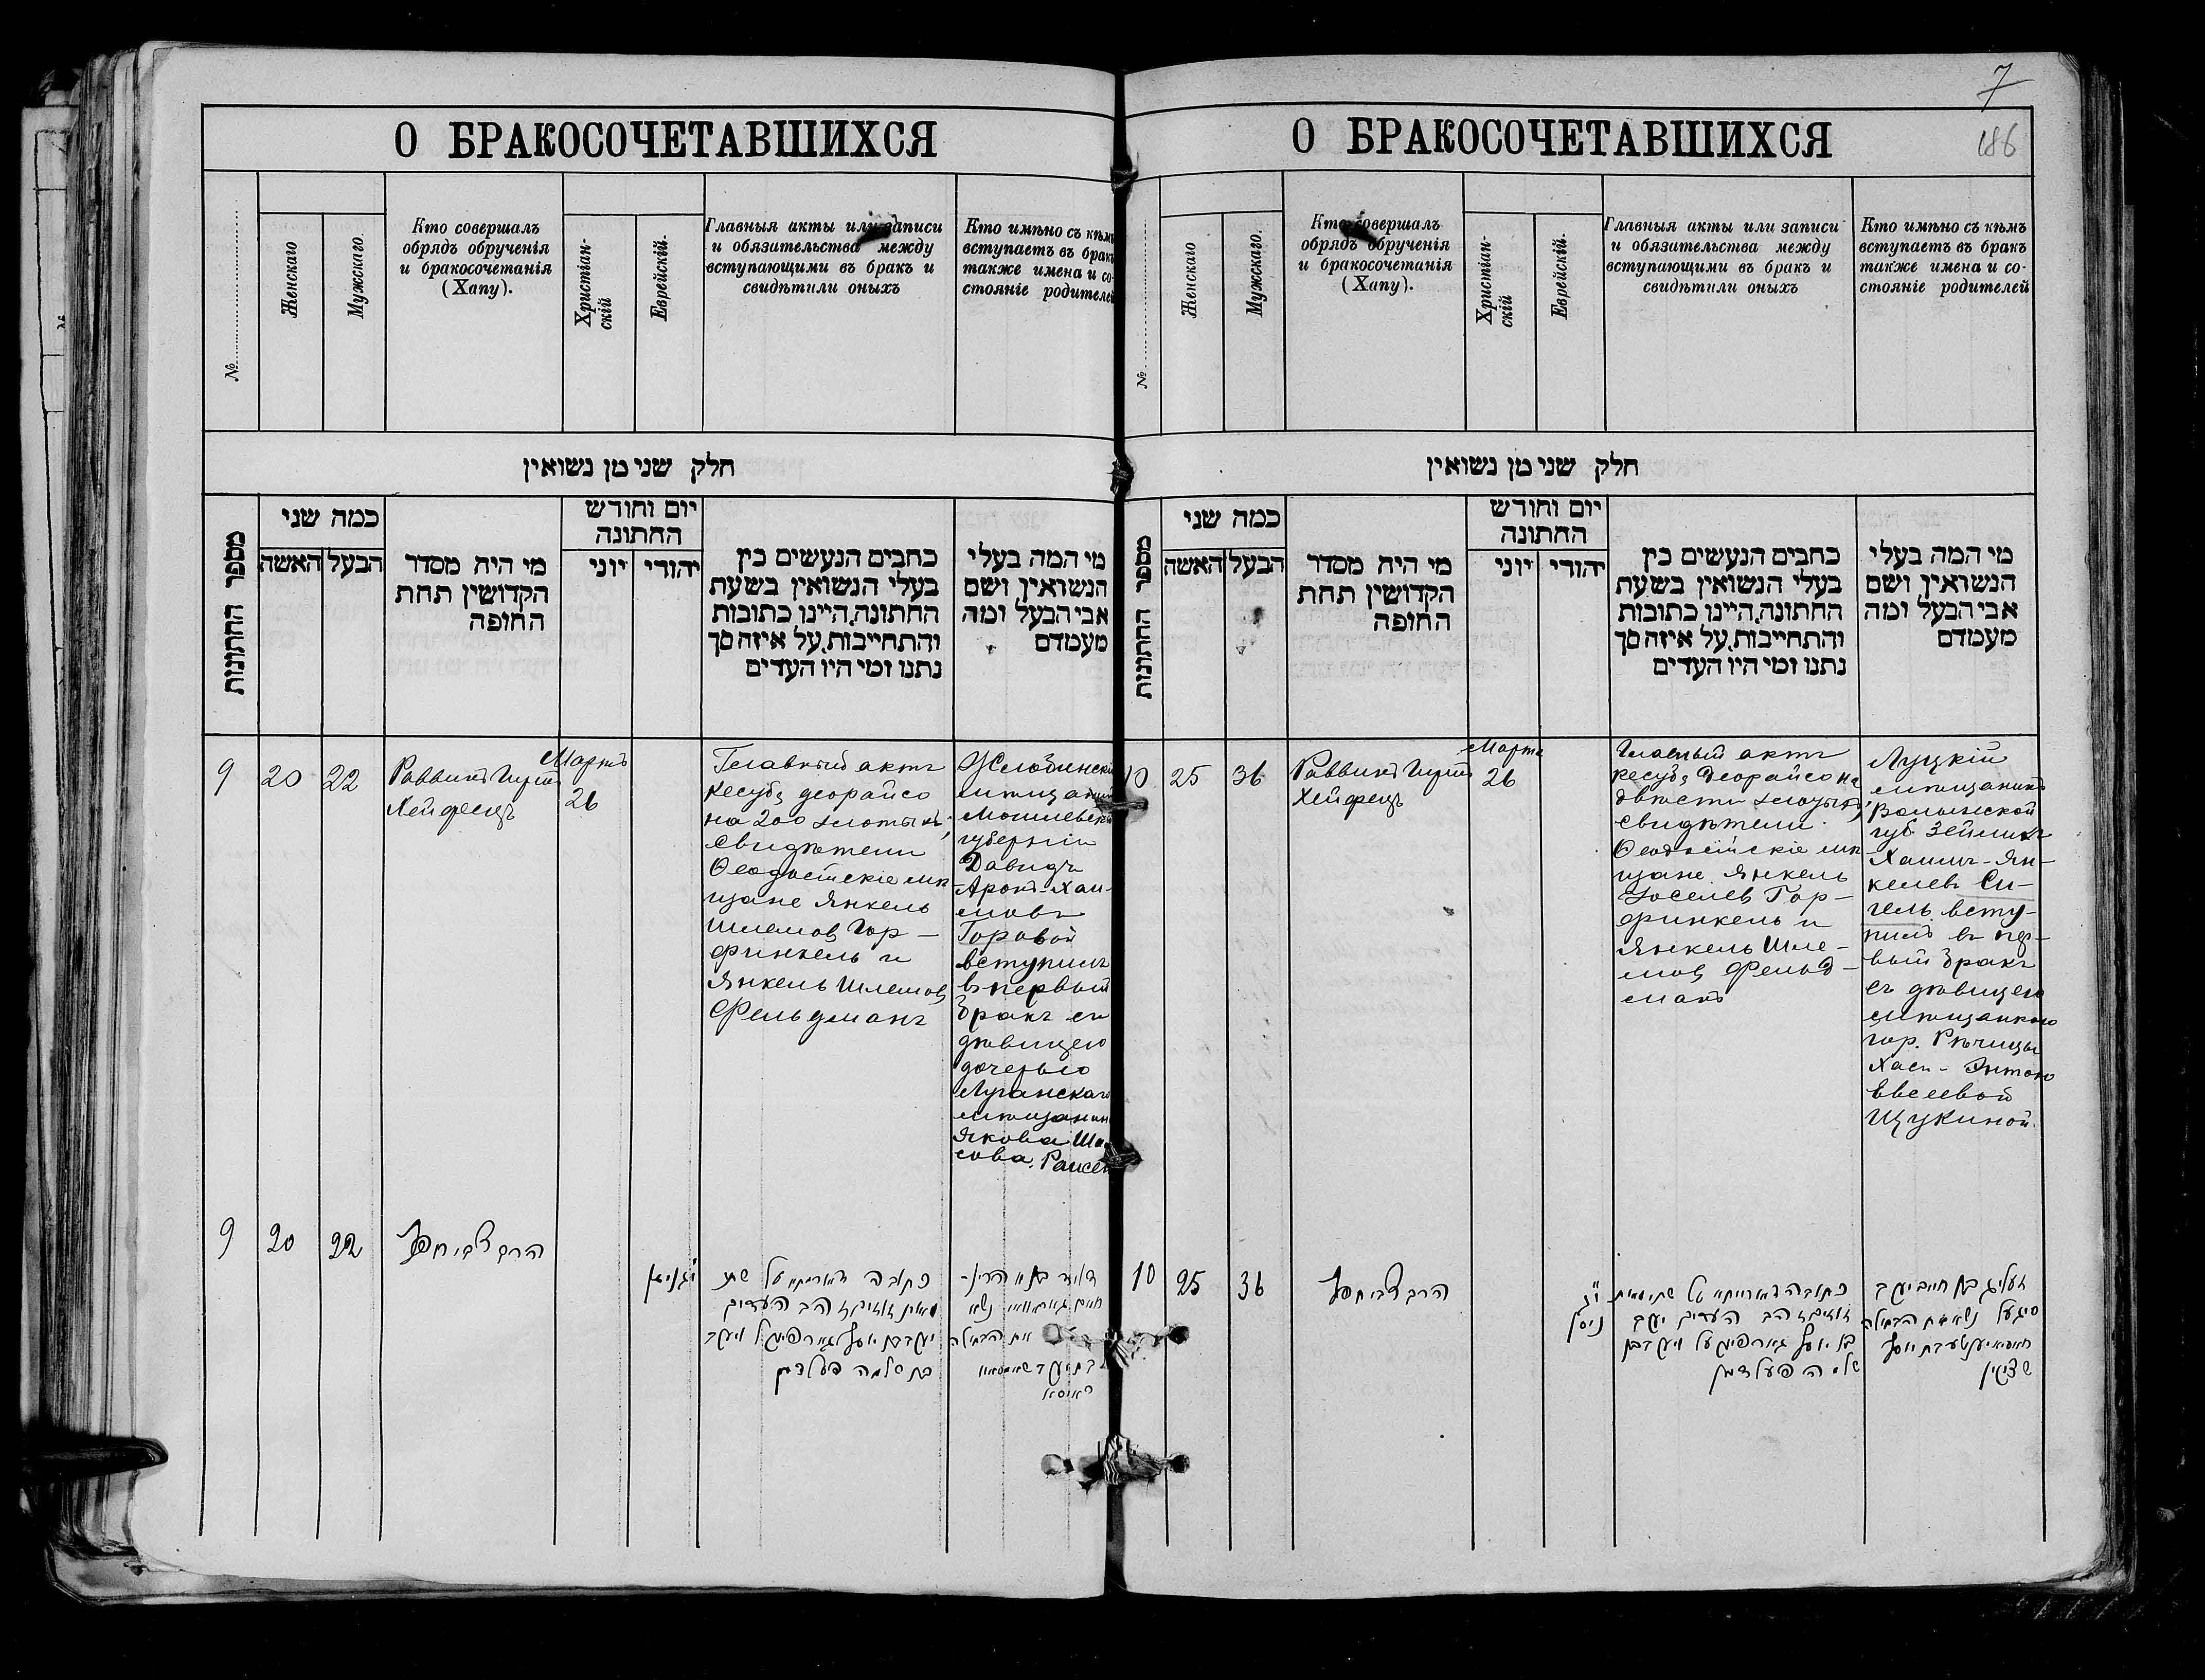 О БРАКОСОЧЕТАВШИХСЯ
№
Женскаго
Мужскаго.
Кто совершалъ
обрядъ обрученія
и бракосочетанія
(Хапу).
Христіан-
скій
Еврейскій.
Главныя акты или записи
и обязательства между
вступающими въ бракъ и
свидѣтили оныхъ
Кто имѣно съ кѣмъ
вступаетъ въ бракъ
также имена и со-
стояніе родителей
חלק שני מן נשואין
מספר החתונות
כמה שני
האשה
הבעל
מי היה מסדר
הקדושין תחת
החופה
יום וחודש
החתונה
יוני
יהודי
כתבים הנעשים בין
בעלי הנשואין בשעת
החתונה, היינו כתובות
והתחייבות, על איזה סך
נתנו ומי היו העדים
מי המה בעלי
הנשואין ושם
אבי הבעל ומה
מעמדם
9
20
22
Раввинъ Гирш
Хейфецъ
Мартъ
26
Главный актъ
кесубэ деорайсо
на 200 злотыхъ;
свидѣтели
Ѳеодосійскіе мѣ
щане Янкель
Шлемов Гор-
финкель и
Янкель Шлемов
Фельдманъ
Жлобинскій
мѣщанин
Могилевской
губерніи
Давидъ
-Аронъ-Хаи-
мовъ
Горовой
вступилъ
въ первый
бракъ съ
дѣвицею
дочерью
Луганскаго
мѣщанин
Якова
сова. Раисей
9
20
22
הרב צבי חפץ
כתובה דאורייתא על שתי
מאות זוזים זהב העדים
יעקב בן יוסף גארפינקל ויעקב
בן שלמה פעלדמן
7
186
О БРАКОСОЧЕТАВШИХСЯ
№
Женскаго
Мужскаго.
Кто совершалъ
обрядъ обрученія
и бракосочетанія
(Хапу).
Христіан-
скій
Еврейскій.
Главныя акты или записи
и обязательства между
вступающими въ бракъ и
свидѣтили оныхъ
Кто имѣно съ кѣмъ
вступаетъ въ бракъ
также имена и со-
стояніе родителей
חלק שני מן נשואין
מספר החתונות
כמה שני
האשה
הבעל
מי היה מסדר
הקדושין תחת
החופה
יום וחודש
החתונה
יוני
יהודי
כתבים הנעשים בין
בעלי הנשואין בשעת
החתונה, היינו כתובות
והתחייבות, על איזה סך
נתנו ומי היו העדים
מי המה בעלי
הנשואין ושם
אבי הבעל ומה
מעמדם
10
25
36
Раввинъ Гирш
Хейфецъ
Марта
26
Главный актъ
кесубэ деорайсо на
двѣсти злотыхъ,
свидѣтели:
Ѳеодосійскіе мѣ
щане Янкель
Іоселев Гор-
финкель и
Янкель Шле-
мов Фельд-
манъ
Луцкій
мѣщанинъ
Волынской
губ. Зейликъ
-Хаимъ-Ян-
келевъ Си-
гель всту-
пилъ въ пер-
вый бракъ
съ дѣвицею
мѣщанкою
гор. Рѣчицы
Хаси-Энтою
Евсеевой
Щукиной.
10
25
36
הרב צבי חפץ
יג
ניסן
כתובה דאורייתא על שתי מאות
זוזים זהב העדים יעקב
בן יוסף גארפינקעל ויעקב בן
שלמה פעלדמן
זעליג בן חיים יעקב
סיגעל נשא את הבתולה
חאסיא יענטע בת יוסף